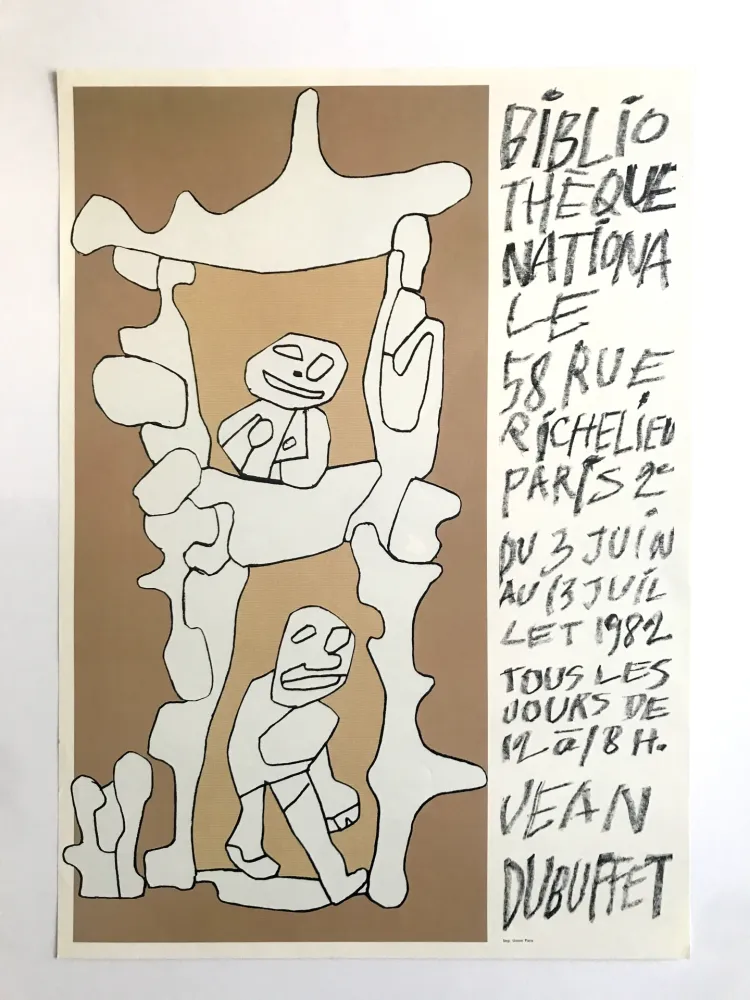 BIBLIO
THÈQUE
NATIONA
LE
58 RUE
RICHELIEU
PARIS 2e
DU 3 JUIN
AU 13 JUIL
LET 1982
TOUS LES
JOURS DE
12 à 18 H.
JEAN
DUBUFFET